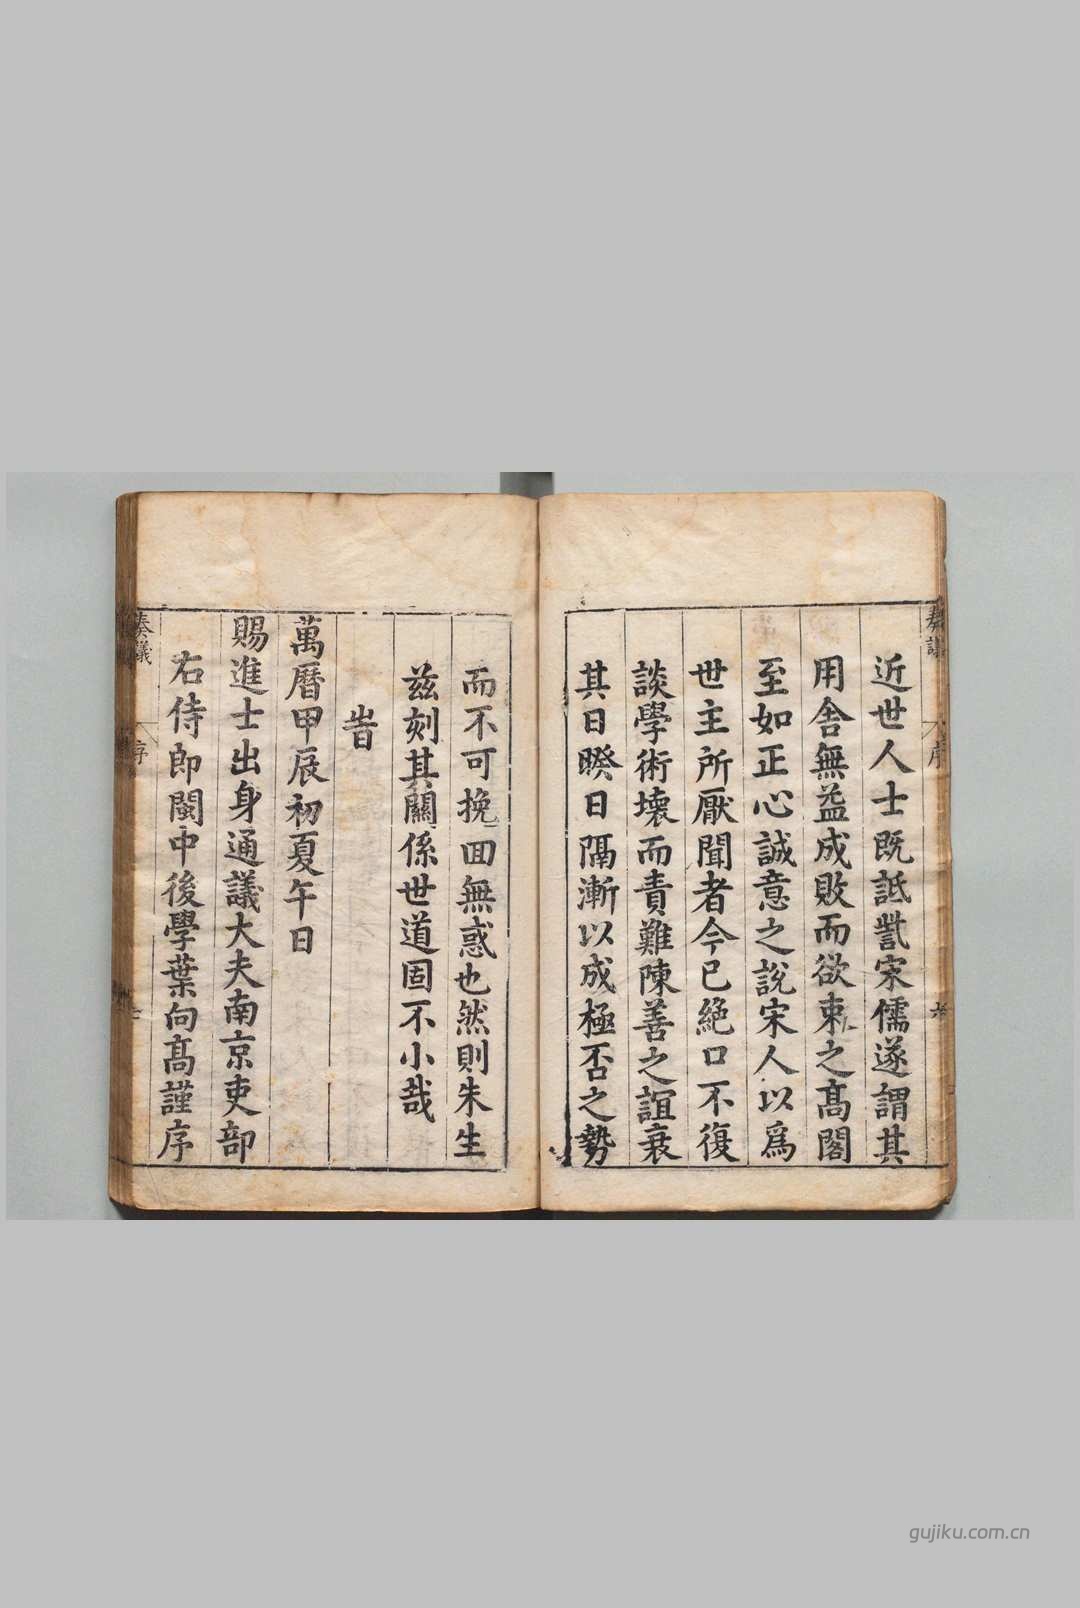 近世人士既詆訾宋儒遂謂其
用舎無益成敗而欲束之髙閣
至如正心誠意之說宋人以爲
世主所厭聞者今已絕口不復
談學術壞而責難陳善之誼衰
其日暌日隔漸以成極否之勢
而不可挽回無惑也然則朱生
兹刻其關係世道固不小哉
旹
萬曆甲辰初夏午日
賜進士出身通議大夫南京吏部
右侍郎閩中後學葉向髙謹序
奏議
序
gujiku.com.cn